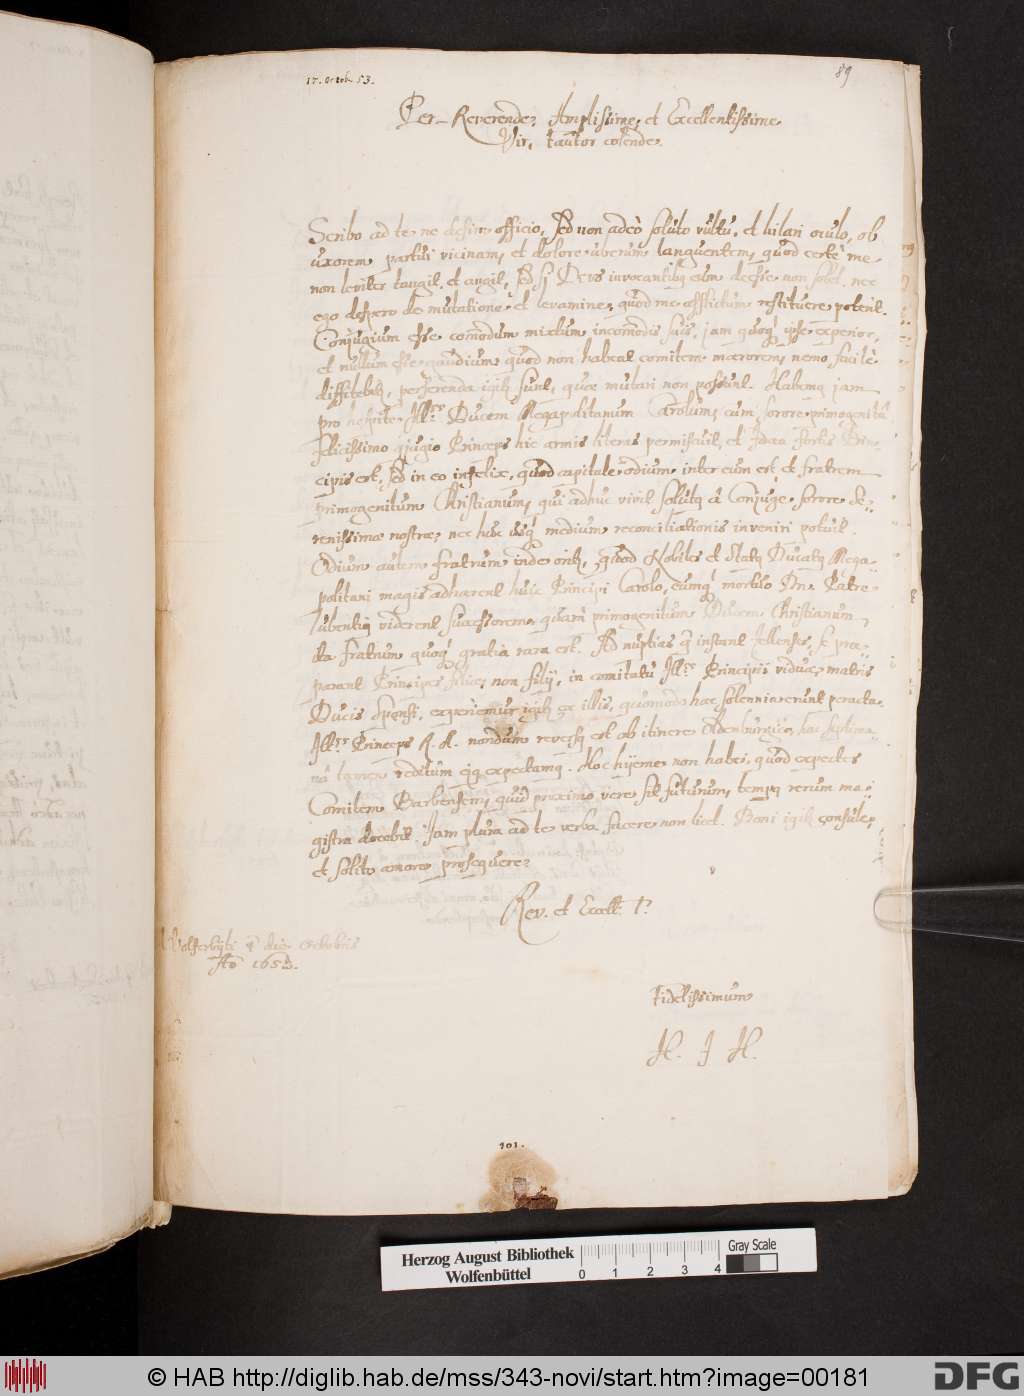 17. Octob. 53.
89
Per-Reverende, Amplissime, et Excellentissime
Vir, fautor colende.
Scribo ad te ne desim officio, sed non adeò soluto vultu, et hilari oculo, ob
uxorem partui vicinam, et dolore uberum languentem, quod certè me
non leviter tangit et angit, sed si Deus invocantibq eum deesse non solet, nec
ego despero de mutatione et levamine, quod me afflictum restituere poterit.
Conjugium esse comodum mixtum incomodis suis, jam quoq ipse experior,
et nullum esse gaudium quod non habeat comitem mærorem, nemo facilè
diffitebit, perferenda igit sunt, quæ mutari non possunt. Habemq jam
pro hospite Ill.rm Ducem Megapolitanum Carolum, cum sorore primogenitâ
felicissimo cjugio Princeps hic armis literas permiscuit, et Idæa fortis Prin-
cipis est, sed in eo infelix, quod capitale odium inter eum est et fratrem
primogenitum Christianum, qui adhuc vivit solutq â Conjuge sorore Se-
renissimæ nostræ, nec huc usq medium reconciliationis inveniri potuit.
Odium autem fratrum inde orit, quod Nobiles et Statq Ducatq Mega-
politani magis adhærent huic Principi Carolo, eumq mortuo Dn. Patre
lubentiq viderent successorem, quam primogenitum Ducem Christianum,
ita fratrum quoq gratia rara est. Ad nuptias q instant Zellenses, se præ-
parant Principes filiæ, non filij, in comitatu Ill.ræ Principii viduæ, matris
Ducis Sponsi, experiemur igit ex illis, quomodo hæc solennia erunt peracta.
Ill.rs Princeps R. A. nondum reversq est ob itinere Oldenburgico, hac septima-
nâ tamen reditum ejq expectamq. Hoc hyeme non habes, quod expectes
Comitem Barbensem, quid proximo vere sit futurum, tempq rerum ma-
gistra docebit. Jam plura ad te verba facere non licet. Boni igit consule,
et solito amore prosequere
Rev. et Excell. T.
Wolferbyti die Octobris
Ao 1653.
fidelissimum
H. J H.
101.
Herzog August Bibliothek
Wolfenbüttel
0 1 2 3 4
Gray Scale
© HAB http://diglib.hab.de/mss/343-novi/start.htm?image=00181
DFG